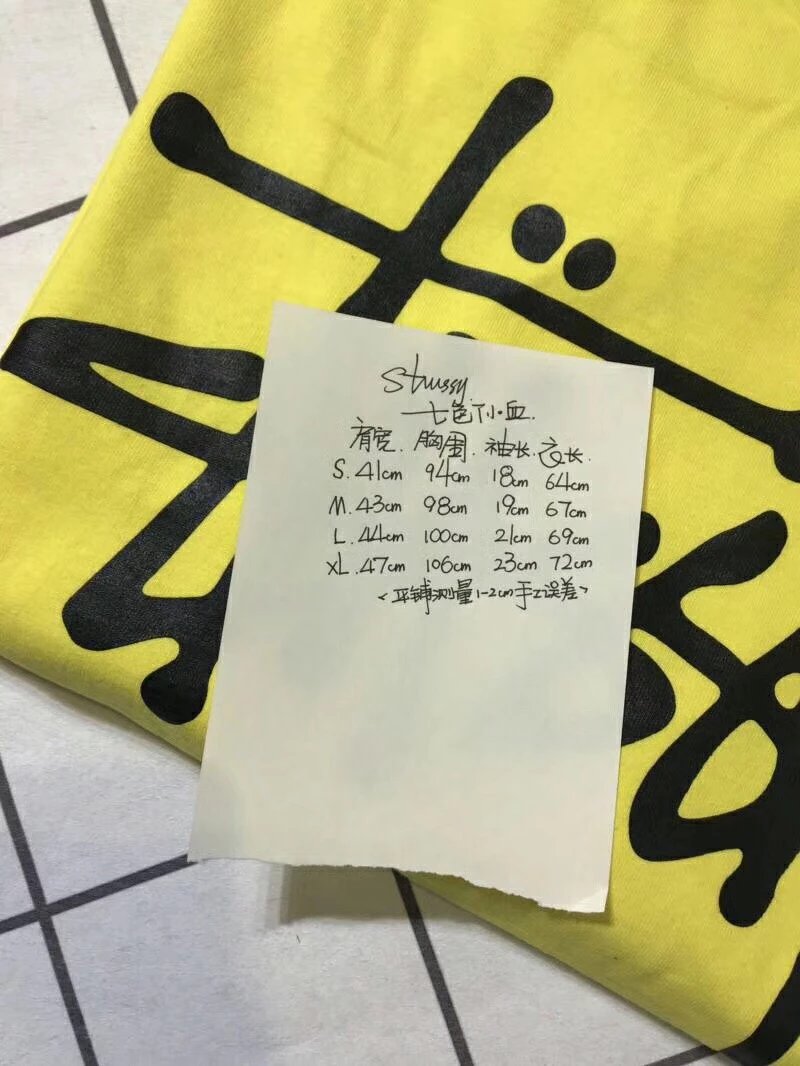 Stussy
七色下小血.
肩宽. 胸围. 袖长. 衣长.
S. 41cm 94cm 18cm 64cm
M. 43cm 98cm 19cm 67cm
L. 44cm 100cm 21cm 69cm
XL. 47cm 106cm 23cm 72cm
<平铺测量1-2cm手工误差>